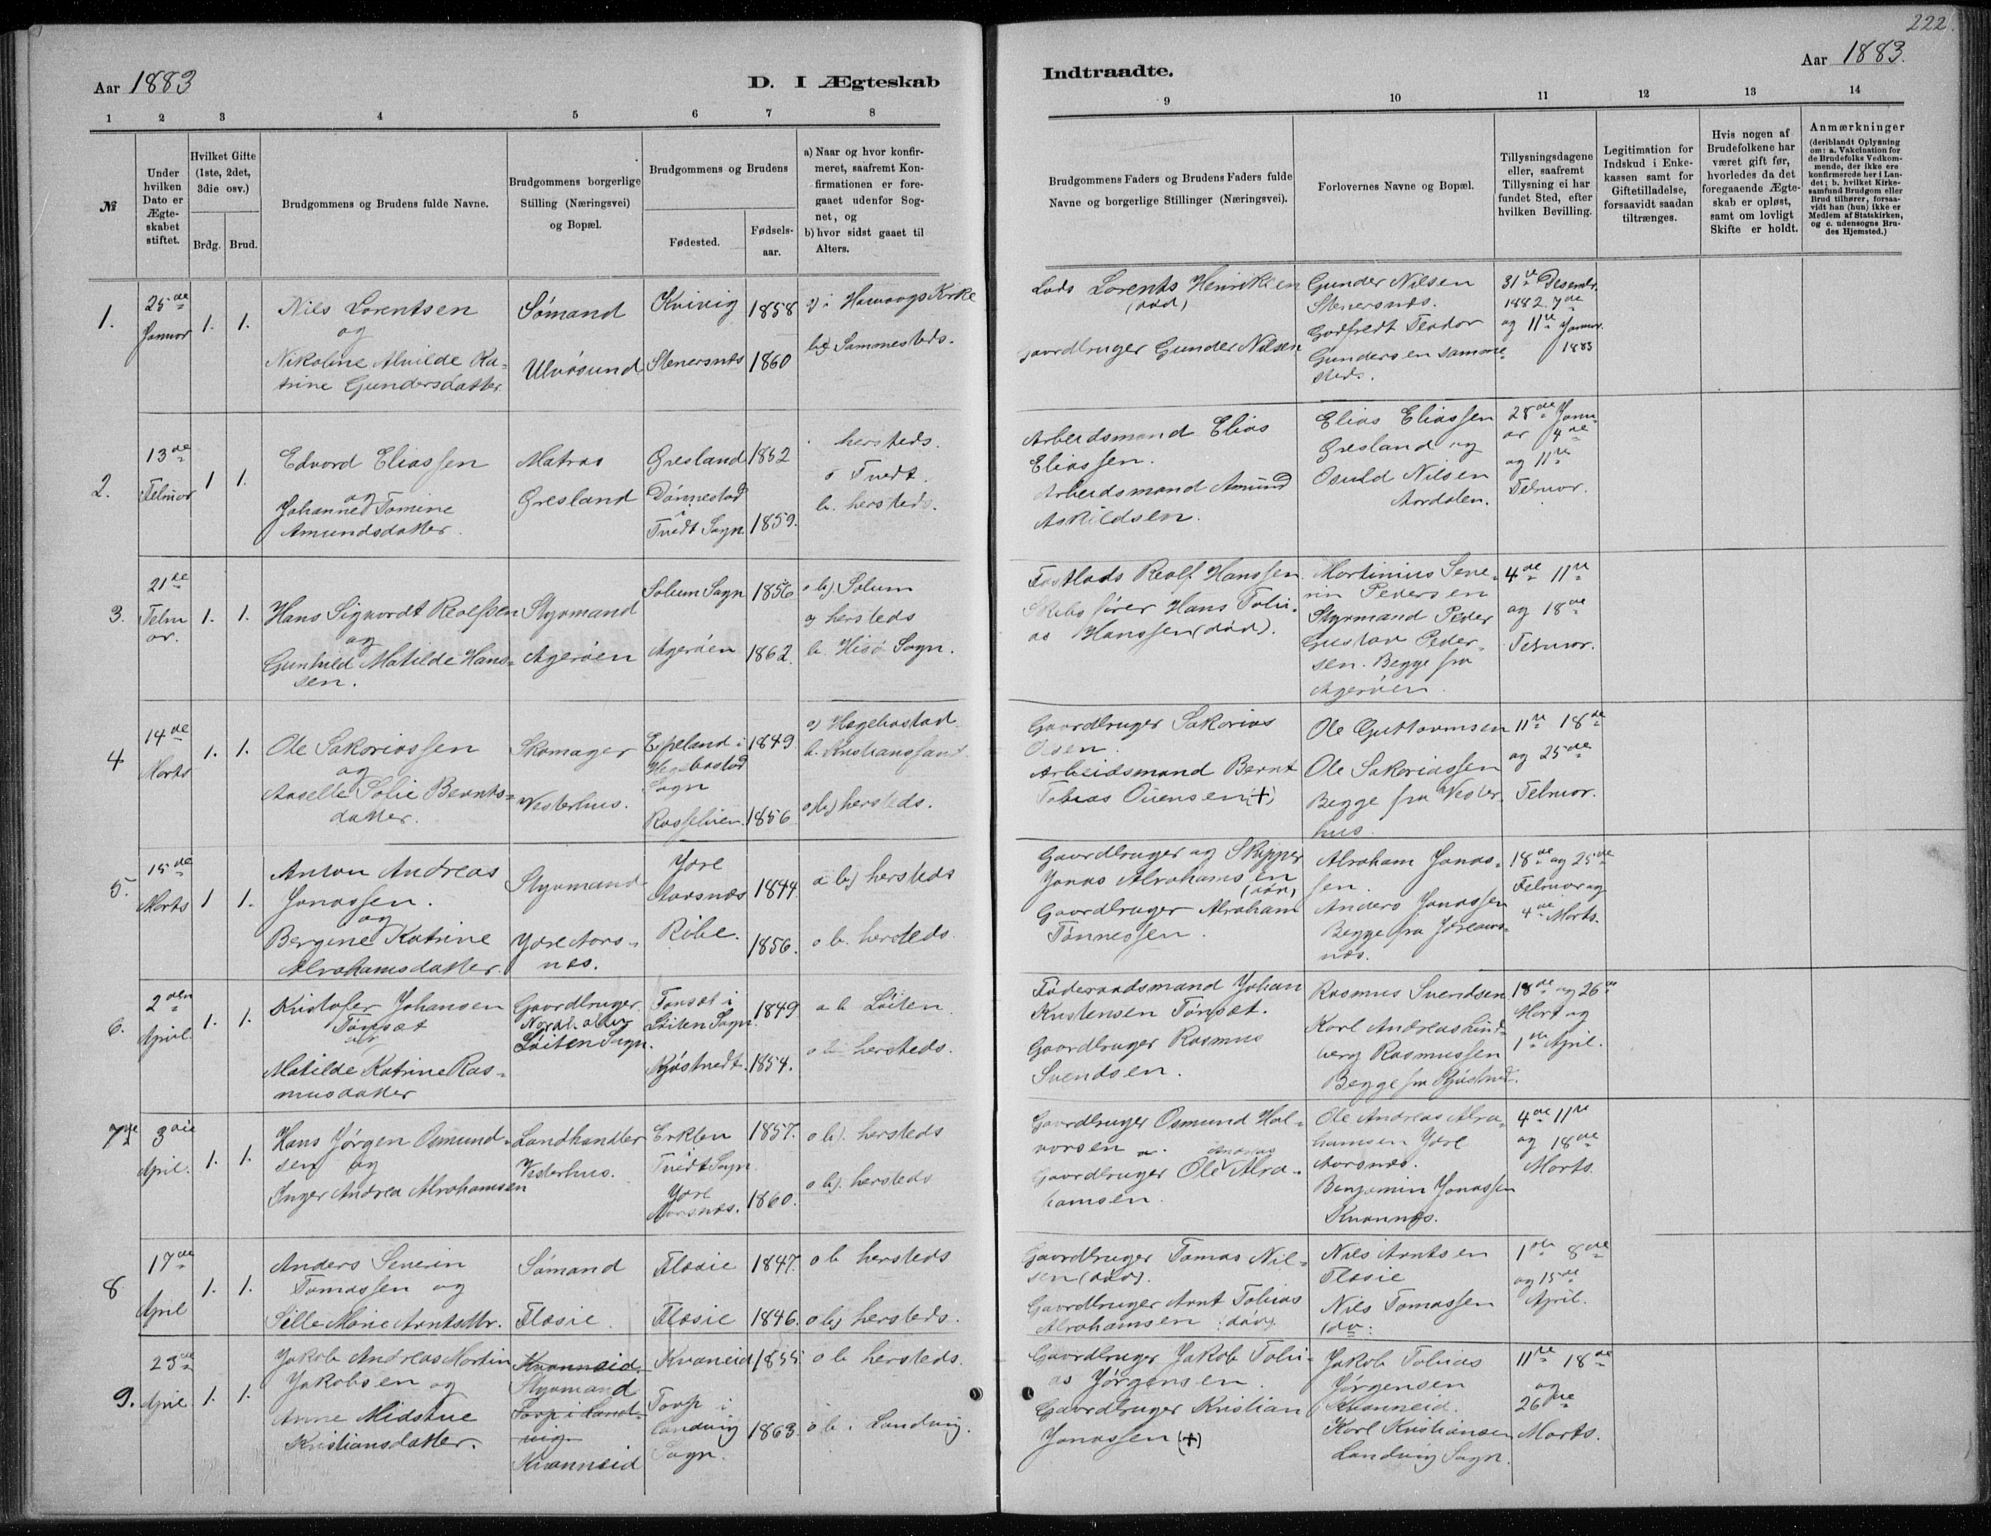 222.
Aar 1883
D. I Ægteskab
Indtraadte.
Aar 1883.
1 2 3 4 5 6 7 8 9 10 11 12 13 14
№
Under
hvilken
Dato er
Ægte-
skabet
stiftet.
Hvilket Gifte
(1ste, 2det,
3die osv.)
Brdg. Brud.
Brudgommens og Brudens fulde Navne.
Brudgommens borgerlige
Stilling (Næringsvei)
og Bopæl.
Brudgommens og Brudens
Fødested.
Fødsels-
aar.
a) Naar og hvor konfir-
meret, saafremt Kon-
firmationen er fore-
gaaet udenfor Sog-
net, og
b) hvor sidst gaaet til
Alters.
Brudgommens Faders og Brudens Faders fulde
Navne og borgerlige Stillinger (Næringsvei).
Forlovernes Navne og Bopæl.
Tillysningsdagene
eller, saafremt
Tillysning ei har
fundet Sted, efter
hvilken Bevilling.
Legitimation for
Indskud i Enke-
kassen samt for
Giftetilladelse,
forsaavidt saadan
tiltrænges.
Hvis nogen af
Brudefolkene har
været gift før,
hvorledes da det
foregaaende Ægte-
skab er opløst,
samt om lovligt
Skifte er holdt.
Anmærkninger
(deriblandt Oplysning
om: a. Vakcination for
de Brudefolks Vedkom-
mende, der ikke ere
konfirmerede her i Lan-
det; b. hvilket Kirke-
samfund Brudgom eller
Brud tilhører, forsaa-
vidt han (hun) ikke er
Medlem af Statskirken,
og c. udensogns Bru-
des Hjemsted.)
1.
25de
Januar
1. 1.
Niels Lorentsen
og
Nikoline Alvilde Ka-
trine Gundersdatter.
Sømand
Ulvøsund
Kvivig 1858
Stenersnes 1860
a) i Haavaags Kirke
b) Sammesteds.
Lods Lorents Henriksen
(død)
Gaardbruger Gunder Nilsen
Gunder Nilsen
Stenersnes.
Godfredt Teodor
Gundersen samme
sted.
31te Desembr.
1882. 7de
og 11te Januar.
1883
2.
13de
Februar
1 1.
Edvard Eliassen
og
Johanne Tomine
Amundsdatter.
Matros
Gresland
Gresland 1852
Dønnestad
i
Tvedt Sogn. 1859.
hersteds.
a Tvedt.
b. hersteds.
Arbeidsmand Elias
Eliassen.
Arbeidsmand Amund
Askildsen.
Elias Eliassen
Gresland og
Osuld Nilsen
Aardalen.
28de Janu-
ar 4de
og 11te
Februar.
3.
21de
Febru
ar.
1. 1.
Hans Sigvardt Rolfsen
og
Gunhild Matilde Hans-
sen.
Styrmand
Agerøen
Solum Sogn 1856
Agerøen 1862.
a b) Solum
a) hersteds
b. Hisø Sogn.
Fastlods Rolf Hanssen
Skibsfører Hans Tobi-
as Hanssen (død).
Martinius Seve-
rin Pedersen
Styrmand Peder
Gustav Peder-
sen. Begge fra
Agerøen.
4de 11te
og 18de
Februar.
4
14de
Marts
1. 1.
Ole Sakariassen
og
Aaselle Sofie Bernts-
datter.
Skomager
Vesterhus.
Eepeland i 1849.
Hegebostad
Sogn
Rosselvien 1856
a) Hegebostad
b. Kristianssand
a) b) hersteds.
Gaardbruger Sakarias
Olsen.
Arbeidsmand Bernt
Tobias Ouensen (+)
Ole Guttormsen
Ole Sakariassen
Begge fra Vester
hus.
11te 18de
og 25de
Februar.
5.
15de
Marts
1 1.
Anton Andreas
Jonassen.
og
Bergine Katrine
Abrahamsdatter.
Styrmand
Ydre Aars-
nes.
Ydre
Aarsnes 1844
Ribe. 1856.
a b) hersteds
a b. hersteds.
Gaardbruger og Skipper
Jonas Abrahamsen
(død)
Gaardbruger Abraham
Tønnessen.
Abraham Jonas-
sen.
Anders Jonassen
Begge fra Ydreaars-
nes.
18de og 25de
Februar og
4de Marts.
6.
2den
April.
1. 1.
Kristofer Johansen
Tønset
og
Matilde Katrine Ras-
musdatter
Gaardbruger
Løiten Sogn.
Tønset i 1849
Løiten Sogn.
Kjøstvedt. 1854.
a b Løiten.
a b hersteds.
Føderaadsmand Johan
Kristensen Tønset.
Gaardbruger Rasmus
Svendsen.
Rasmus Svendsen
Karl Andreas Lind-
berg Rasmussen
Begge fra Kjøstved.
18de og 26de
Mart og
1ste April.
7de
3die
April.
1. 1.
Hans Jørgen Osmund-
sen og
Inger Andrea Abrahamsen
Landhandler
Vesterhus.
Erklen 1857.
Tvedt Sogn.
Ydre
Aarsnes. 1860.
a b). hersteds
a b). hersteds
Gaardbruger Osmund Hal-
vorsen
Andreas
Gaardbruger Ole Abra-
hamsen.
Ole Andreas Abra-
hamsen Ydre
Aarsnes.
Benjamin Jonassen
Kvannes.
4de 11te
og 18de
Marts.
8
17de
April
1. 1.
Anders Severin
Tomassen og
Sille Marie Arntsdtr.
Sømand
Flosie.
Flosie 1847.
Flosie 1846.
a b hersteds
a b) hersteds.
Gaardbruger Tomas Nil-
sen (død).
Gaardbruger Arnt Tobias
Abrahamsen (død)
Nils Arntsen
Flosie
Nils Tomassen
do.
1ste 8de
og 15de
April.
9.
23de
April
1. 1.
Jakob Andreas Martin
Jakobsen og
Anne Midstue
Kristiansdatter.
Kvanneid
Styrmand
Torp i Land-
vig
Kvanneid
Kvaneid 1855
Torp i
Landvig 1863
Sogn.
a b hersteds.
a b. i Landvig.
Gaardbruger Jakob Tobi-
as Jørgensen.
Gaardbruger Kristian
Jonassen (+)
Jakob Tobias
Jørgensen
Kvanneid.
Karl Kristiansen
Landvig Sogn.
11te 18de
og
26de
Marts.